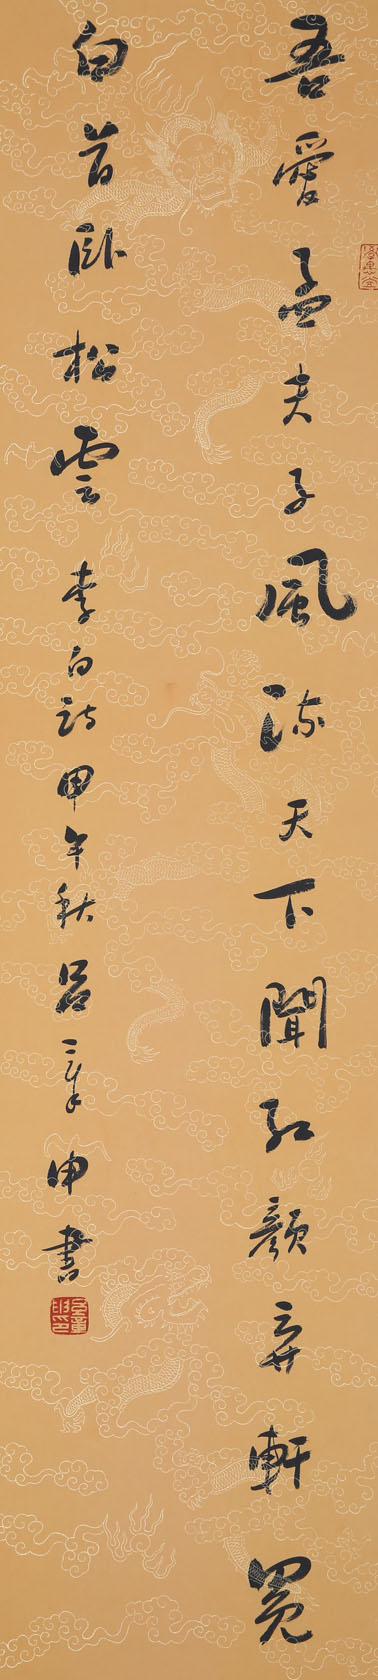 吾愛孟夫子風流天下聞紅顏弃軒冕
白首臥松雲 李白詩 甲午秋 呂章申書